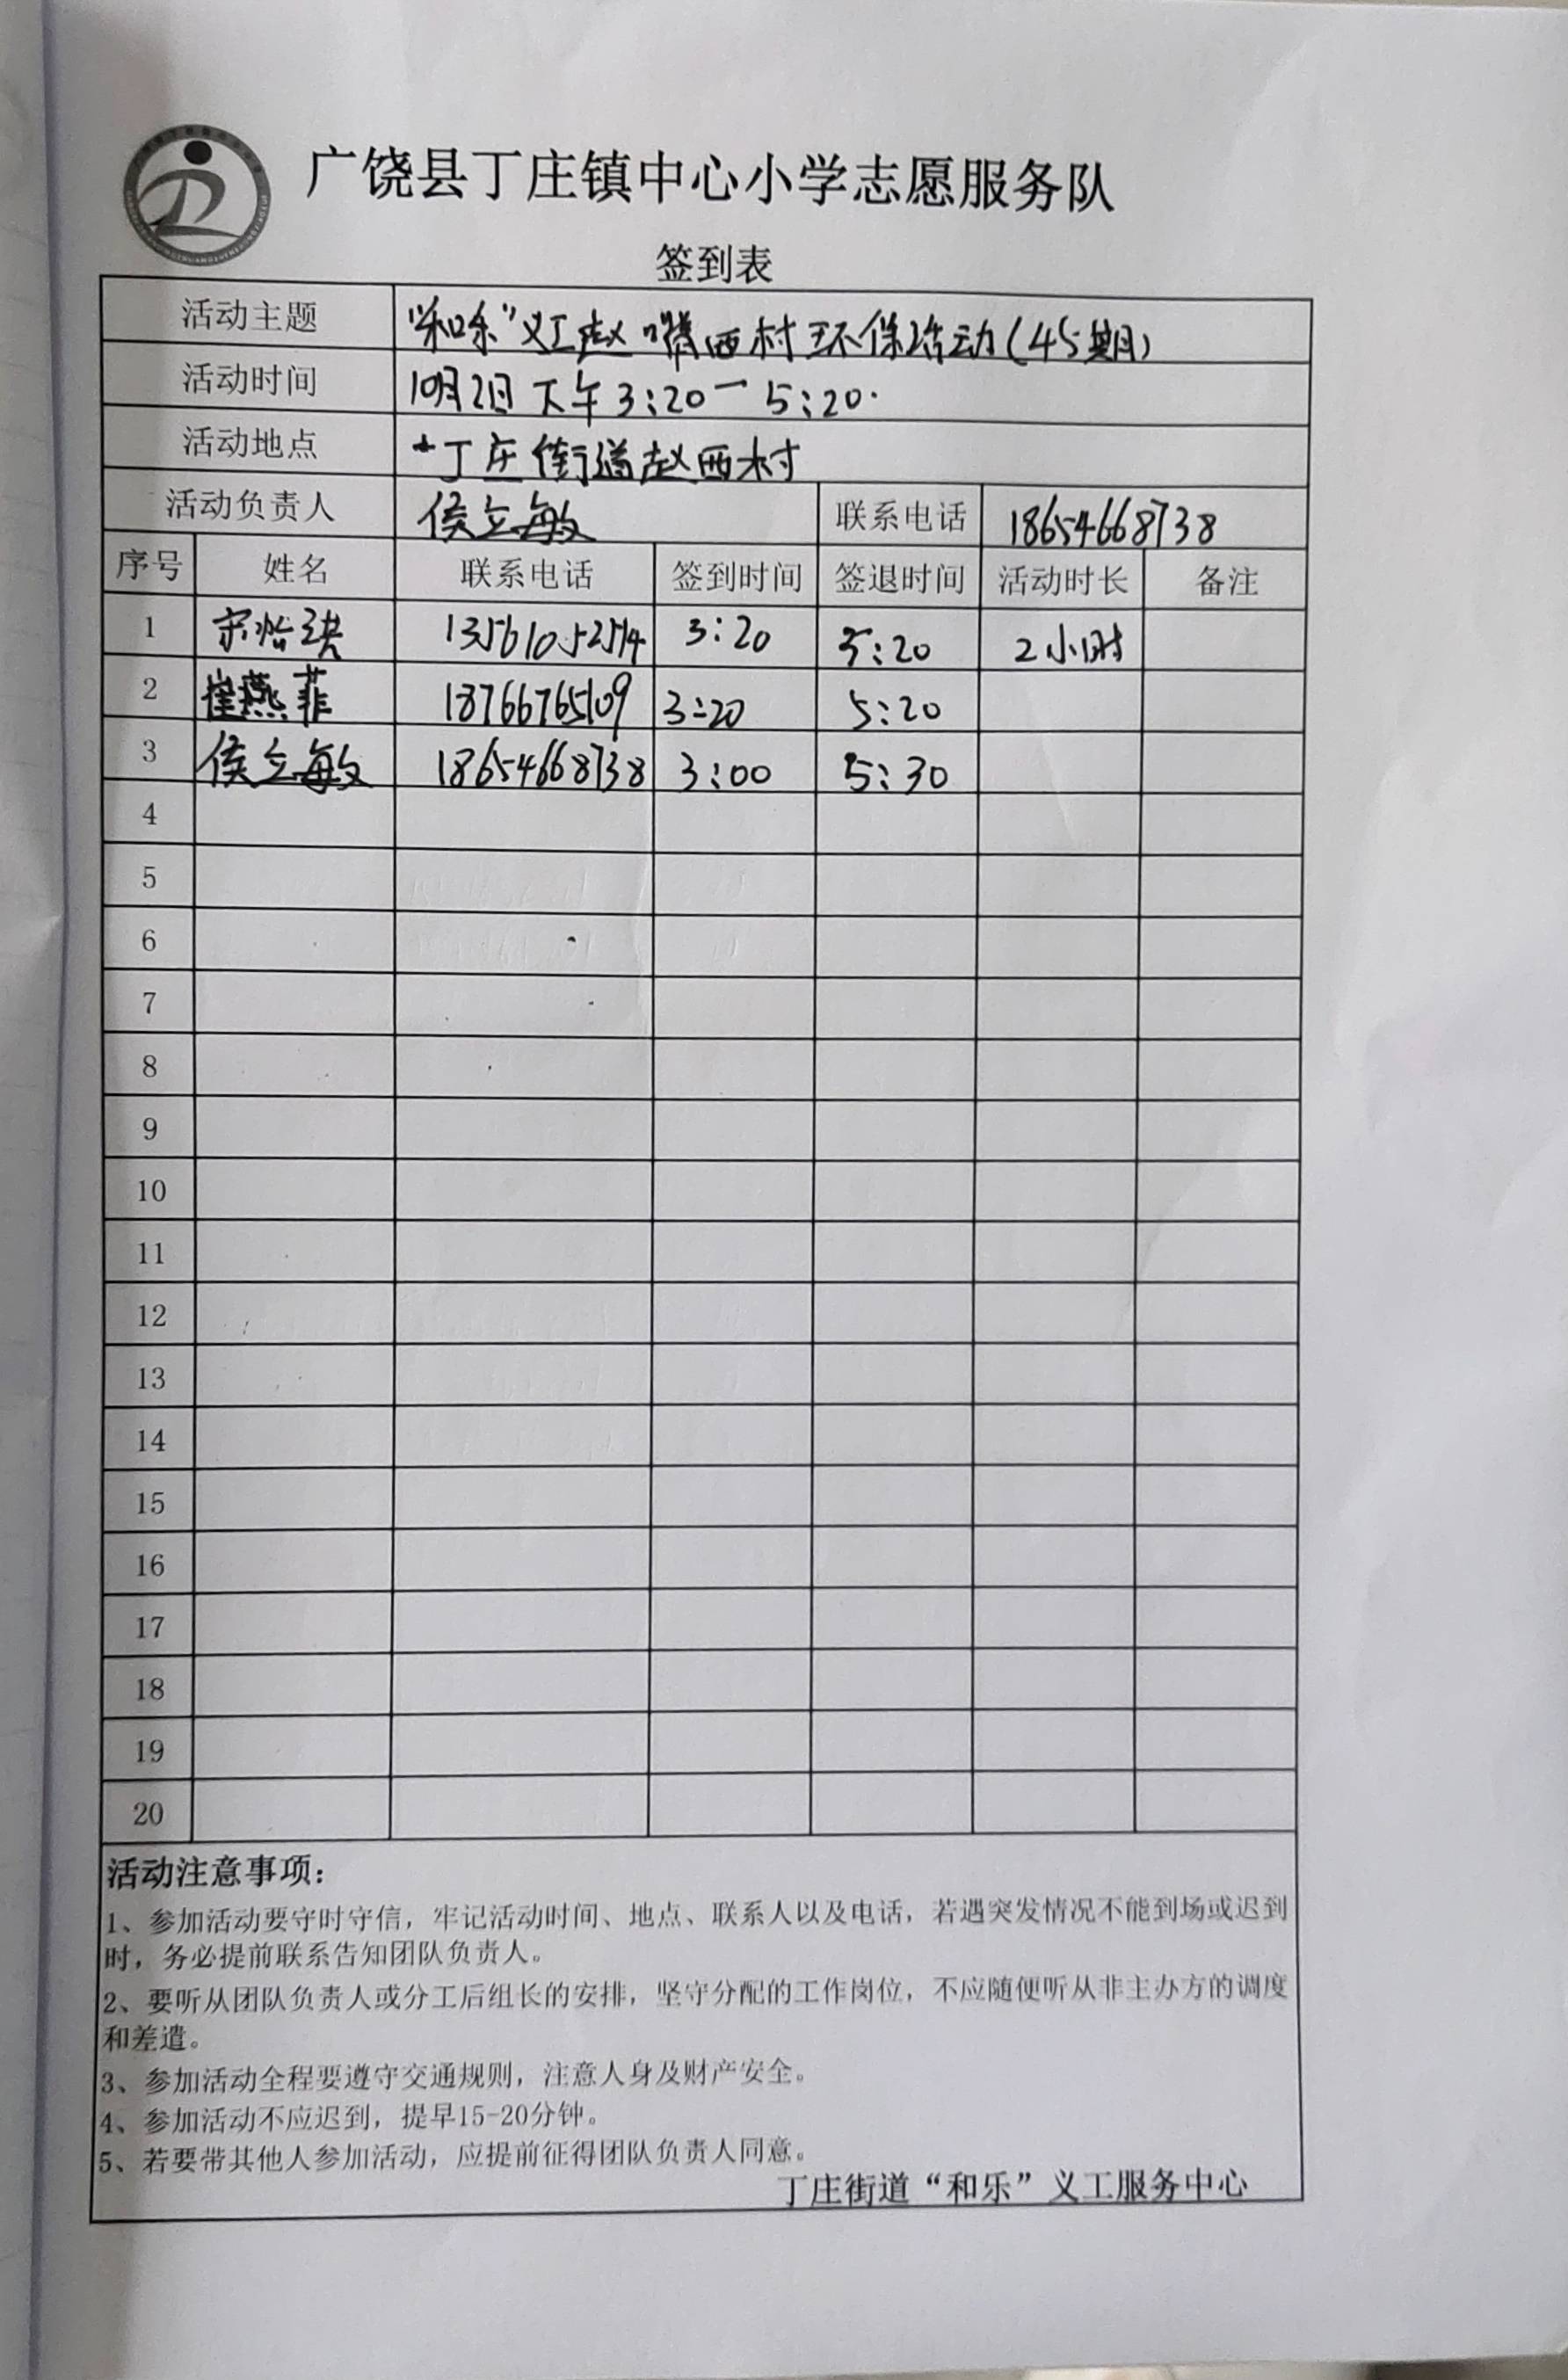 广饶县丁庄镇中心小学志愿服务队
签到表
活动主题 “和乐”义工赵嘴西村环保活动(45期)
活动时间 10月2日下午3:20—5:20.
活动地点 丁庄街道赵西村
活动负责人 侯立敏 联系电话 18654668738
序号 姓名 联系电话 签到时间 签退时间 活动时长 备注
1 宋怡琪 13561052514 3:20 5:20 2小时
2 崔燕菲 18766765109 3:20 5:20
3 侯立敏 18654668738 3:00 5:30
4
5
6
7
8
9
10
11
12
13
14
15
16
17
18
19
20
活动注意事项:
1、参加活动要守时守信，牢记活动时间、地点、联系人以及电话，若遇突发情况不能到场或迟到
时，务必提前联系告知团队负责人。
2、要听从团队负责人或分工后组长的安排，坚守分配的工作岗位，不应随便听从非主办方的调度
和差遣。
3、参加活动全程要遵守交通规则，注意人身及财产安全。
4、参加活动不应迟到，提早15-20分钟。
5、若要带其他人参加活动，应提前征得团队负责人同意。
丁庄街道“和乐”义工服务中心